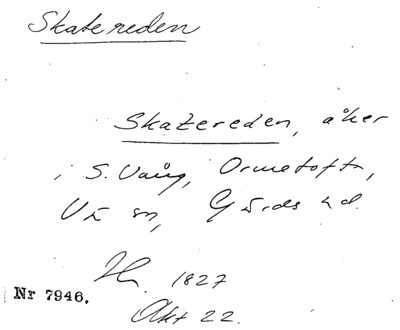 Skatereden
Skatereden, åker
i S. Vång, Ormetofta,
Vä sn, Gärds hd.
1827
Nr 7946.
Akt 22.